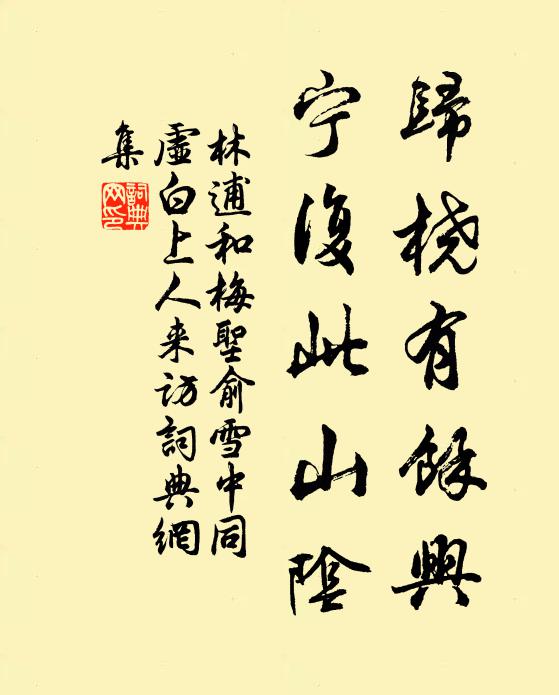 歸橈有餘興
宁復此山陰
林逋和梅聖俞雪中同
虛白上人来访詞典網
集
詞典
网印